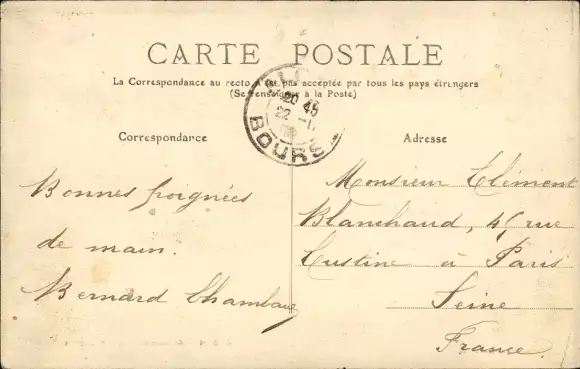 CARTE POSTALE
La Correspondance au recto n'est pas acceptée par tous les pays étrangers
(Se renseigner à la Poste)
20 45
22
BOURSE
Correspondance
Adresse
Bonnes poignées
de main.
Bernard
Monsieur Clément
Blanchaud, 45 rue
Custine à Paris
Seine
France.